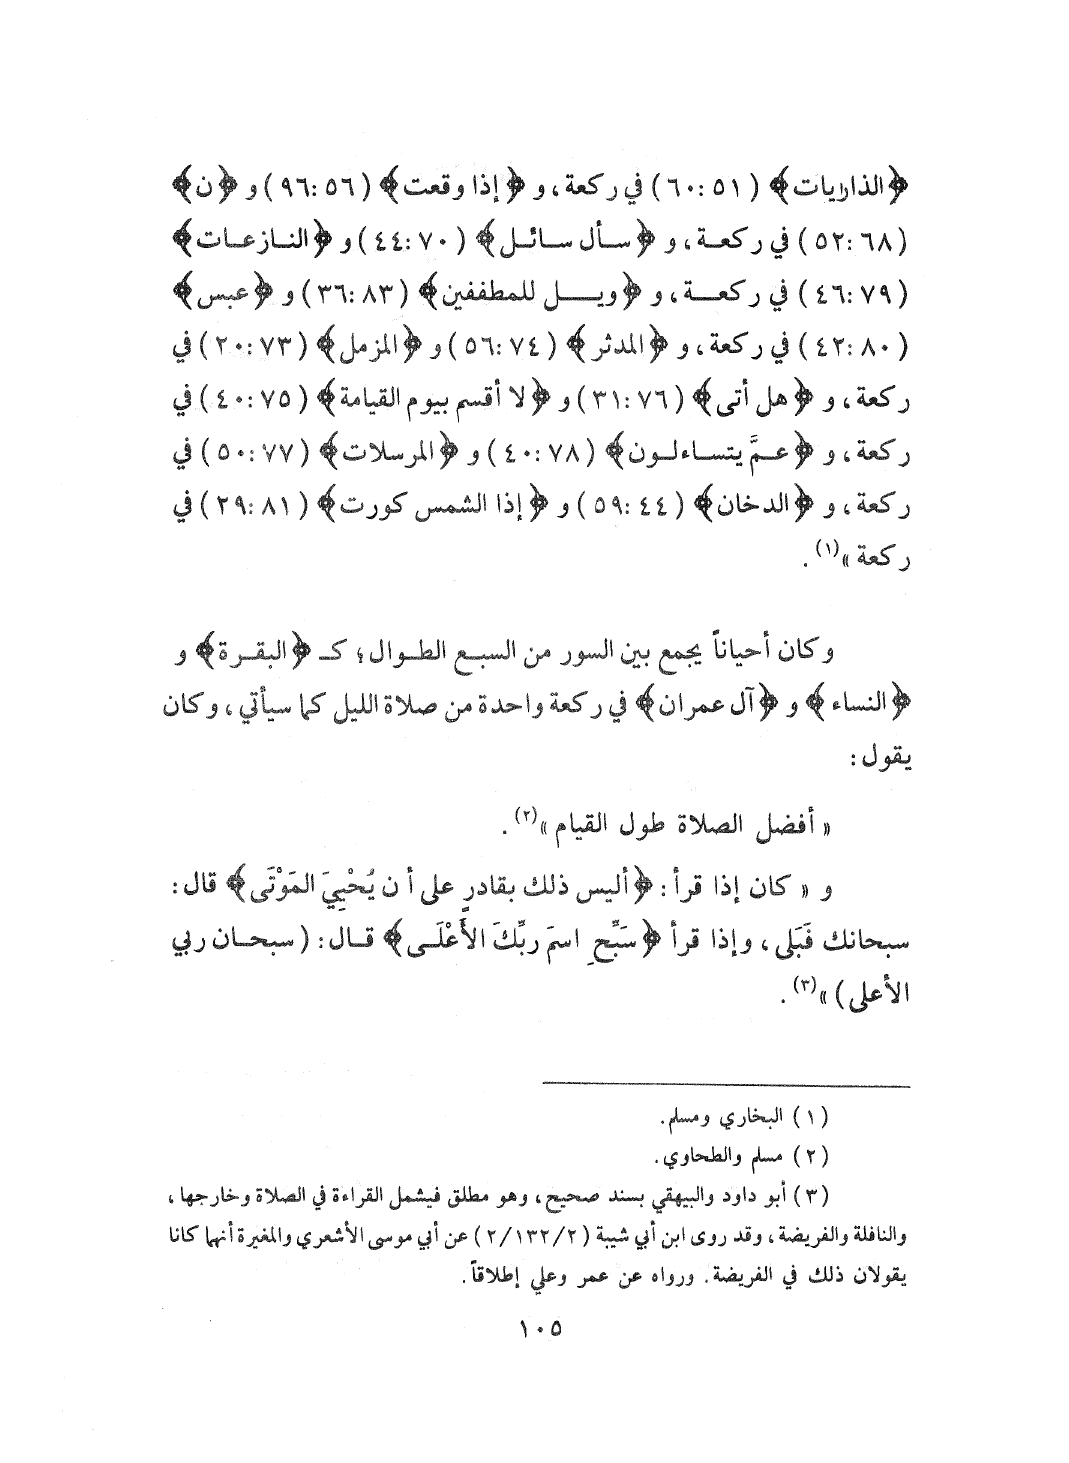 ﴿الذاريات﴾ (٥١: ٦٠) في ركعة، و ﴿إذا وقعت﴾ (٥٦: ٩٦) و ﴿ن﴾
(٦٨: ٥٢) في ركعة، و ﴿سأل سائل﴾ (٧٠: ٤٤) و ﴿النازعات﴾
(٧٩: ٤٦) في ركعة، و ﴿ويل للمطففين﴾ (٨٣: ٣٦) و ﴿عبس﴾
(٨٠: ٤٢) في ركعة، و ﴿المدثر﴾ (٧٤: ٥٦) و ﴿المزمل﴾ (٧٣: ٢٠) في
ركعة، و ﴿هل أتى﴾ (٧٦: ٣١) و ﴿لا أقسم بيوم القيامة﴾ (٧٥: ٤٠) في
ركعة، و ﴿عمَّ يتساءلون﴾ (٧٨: ٤٠) و ﴿المرسلات﴾ (٧٧: ٥٠) في
ركعة، و ﴿الدخان﴾ (٤٤: ٥٩) و ﴿إذا الشمس كورت﴾ (٨١: ٢٩) في
ركعة»(١).
وكان أحياناً يجمع بين السور من السبع الطوال؛ كـ ﴿البقرة﴾ و
﴿النساء﴾ و ﴿آل عمران﴾ في ركعة واحدة من صلاة الليل كما سيأتي، وكان
يقول:
«أفضل الصلاة طول القيام»(٢).
و «كان إذا قرأ: ﴿أليس ذلك بقادرٍ على أن يُحْيِيَ المَوْتَى﴾ قال:
سبحانك فَبَلى، وإذا قرأ ﴿سَبِّحِ اسمَ ربِّكَ الأَعْلَى﴾ قال: (سبحان ربي
الأعلى)»(٣).
(١) البخاري ومسلم.
(٢) مسلم والطحاوي.
(٣) أبو داود والبيهقي بسند صحيح، وهو مطلق فيشمل القراءة في الصلاة وخارجها،
والنافلة والفريضة، وقد روى ابن أبي شيبة (٢/١٣٢/٢) عن أبي موسى الأشعري والمغيرة أنهما كانا
يقولان ذلك في الفريضة. ورواه عن عمر وعلي إطلاقاً.
١٠٥